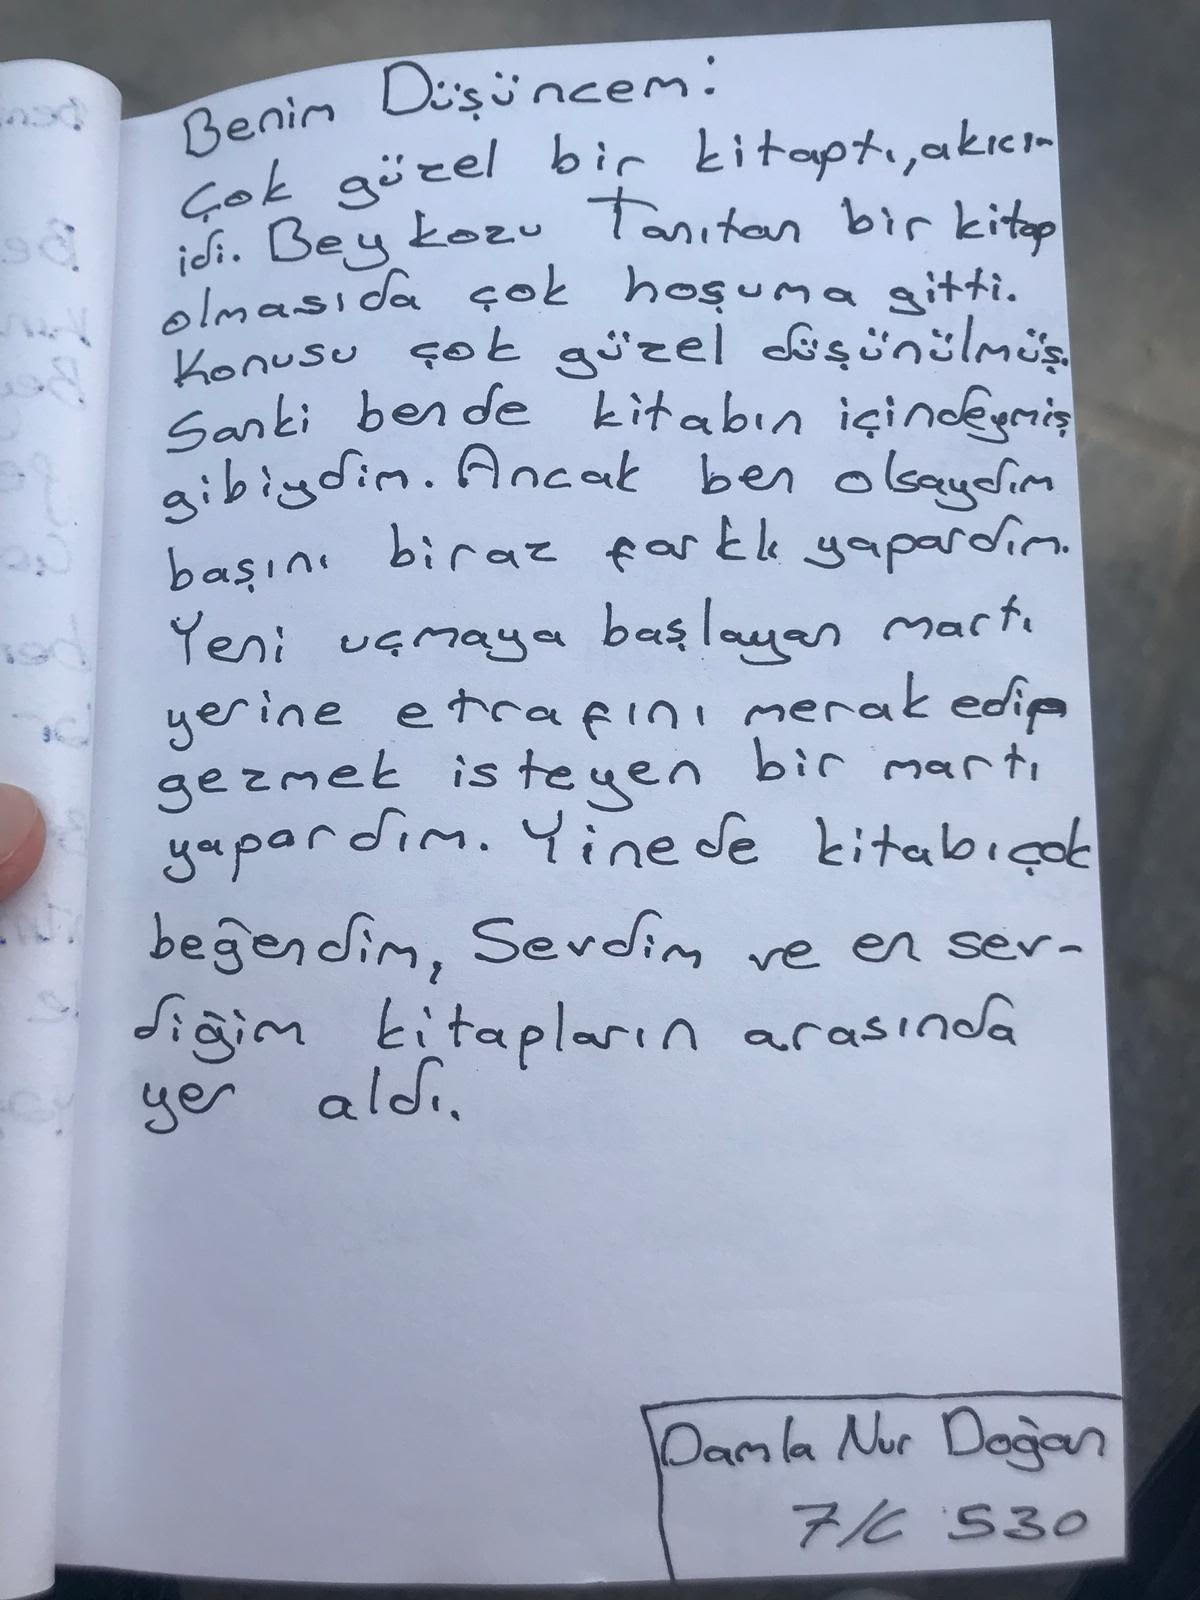 Benim Düşüncem:
Çok güzel bir kitaptı, akıcı-
idi. Beykozu Tanıtan bir kitap
olmasıda çok hoşuma gitti.
Konusu çok güzel düşünülmüş.
Sanki bende kitabın içindeymiş
gibiydim. Ancak ben olsaydım
başını biraz farklı yapardım.
Yeni uçmaya başlayan martı
yerine etrafını merak edip
gezmek isteyen bir martı
yapardım. Yinede kitabı çok
beğendim, Sevdim ve en sev-
diğim kitapların arasında
yer aldı.
Damla Nur Doğan
7/C 530